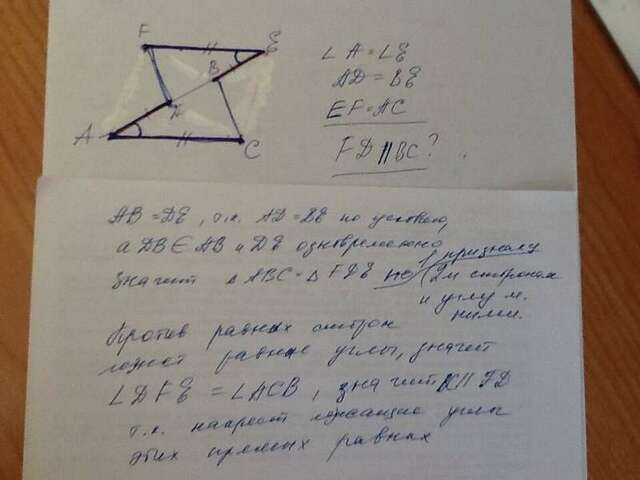 F
E
B
A
C
∠A = ∠E
AD = BE
EF = AC
FD || BC ?
AB = DE, т.к. AD = BE по условию,
а DB ∈ AB и DE одновременно
значит △ABC = △FDE по 1 признаку
(2м сторонам
и углу м.
ними.
Против равных сторон
лежат равные углы, значит
∠DFE = ∠ACB, значит BC || FD
т.к. накрест лежащие углы
этих прямых равны